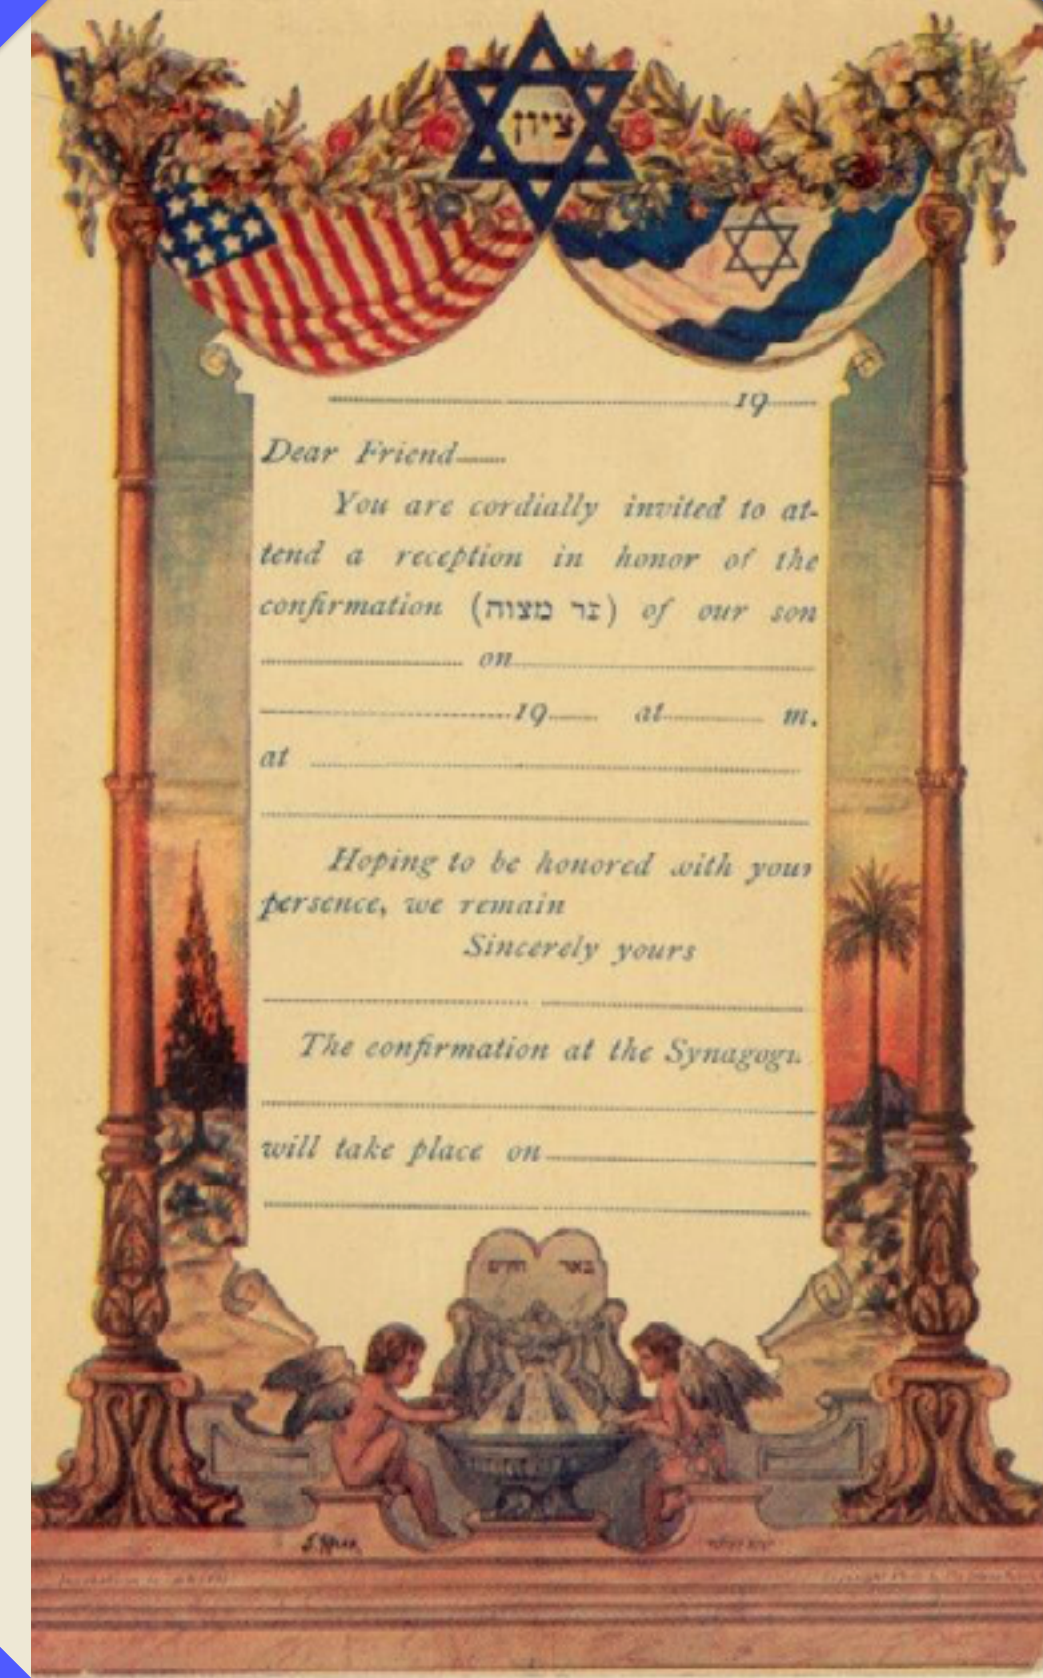 ציון
19
Dear Friend
You are cordially invited to at-
tend a reception in honor of the
confirmation (בר מצוה) of our son
on
19 at m.
at
Hoping to be honored with your
persence, we remain
Sincerely yours
The confirmation at the Synagogu
will take place on
באר חיים